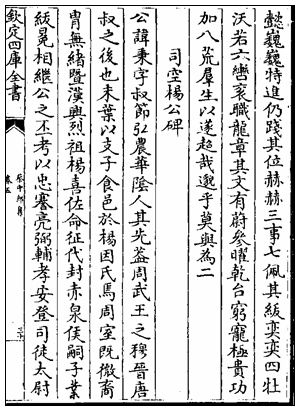 懿巍巍特進仍踐其位赫赫三事七佩其紱奕奕四牡
沃若六轡衮職龍章其文有蔚參曜乾台窮寵極貴功
加八荒羣生以遂超哉邈乎莫與為二
司空楊公碑
公諱秉字叔節弘農華隂人其先葢周武王之穆晉唐
叔之後也末葉以支子食邑於楊因氏焉周室既微裔
胄無緒暨漢興烈祖楊喜佐命征伐封赤泉侯嗣子業
紱冕相繼公之丕考以忠蹇亮弼輔孝安登司徒太尉
欽定四庫全書
蔡中郎集
卷五